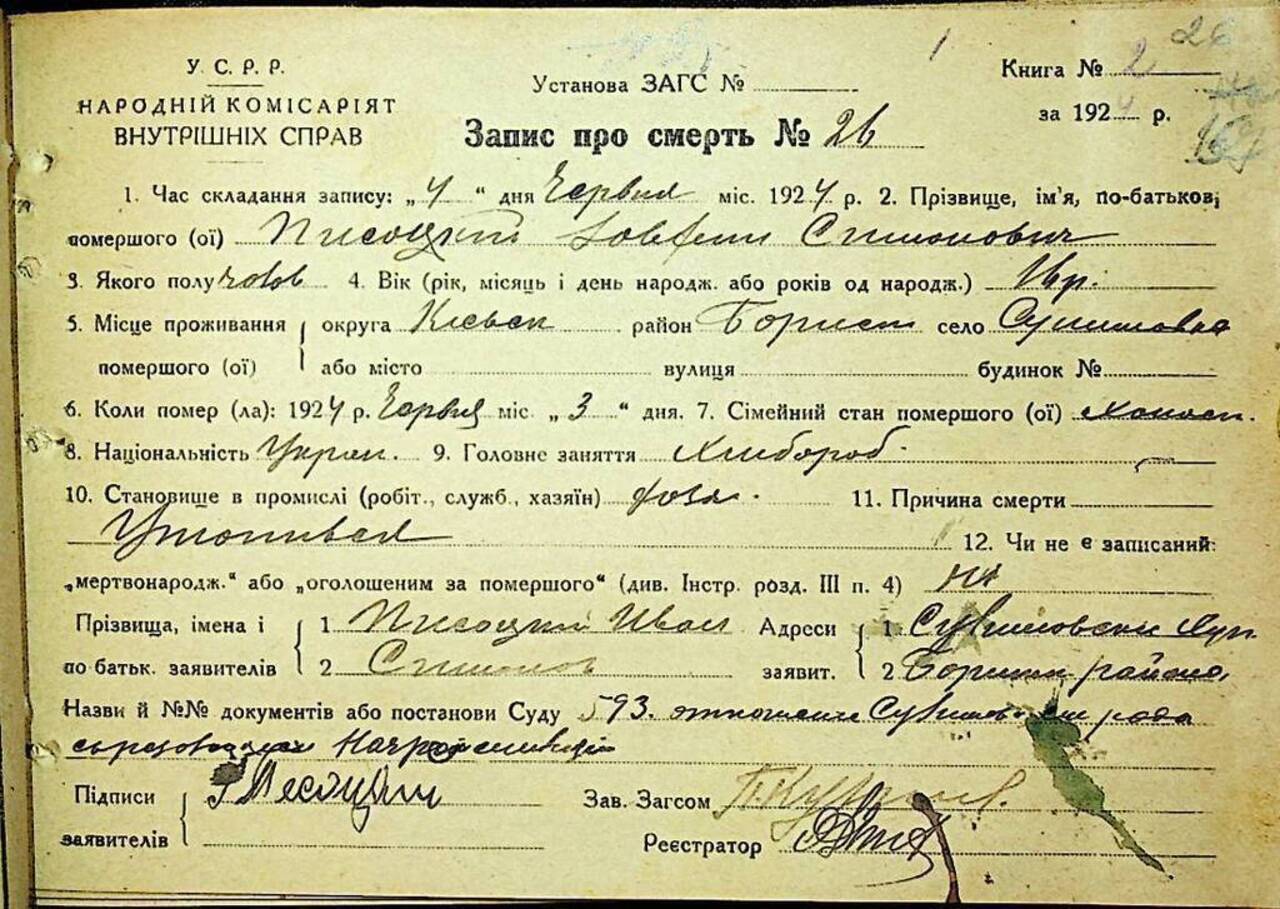 26
У. С. Р. Р.
НАРОДНІЙ КОМІСАРІЯТ
ВНУТРІШНІХ СПРАВ
Установа ЗАГС №
Книга № 2
за 1924 р.
Запис про смерть № 26
1. Час складання запису: „4“ дня Червня міс. 1924 р. 2. Прізвище, ім'я, по-батькові
помершого (ої) Писоцкий Симонович
3. Якого полу чолов 4. Вік (рік, місяць і день народж. або років од народж.)
5. Місце проживання округа Киевск район Борисп село
помершого (ої) або місто вулиця будинок №
6. Коли помер (ла): 1924 р. Червня міс „3“ дня. 7. Сімейний стан помершого (ої) холост.
8. Національність Украп. 9. Головне заняття Хлибороб.
10. Становище в промислі (робіт., служб., хазяїн) 11. Причина смерти
Утопився 12. Чи не є записаний:
„мертвонародж.“ або „оголошеним за помершого“ (див. Інстр. розд. III п. 4) ні
Прізвища, імена і 1 Писоцкий Иван Адреси 1
по батьк. заявителів 2 Симонов заявит. 2 района
Назви й №№ документів або постанови Суду 593. отношение
Підписи
Зав. Загсом
заявителів
Реєстратор